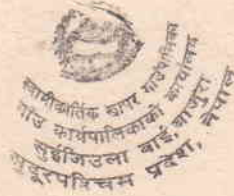 स्वामीकार्तिक खापर गाउँपालिका
गाउँ कार्यपालिकाको कार्यालय
लुईजिउला वाई, बाजुरा
सुदूरपश्चिम प्रदेश, नेपाल